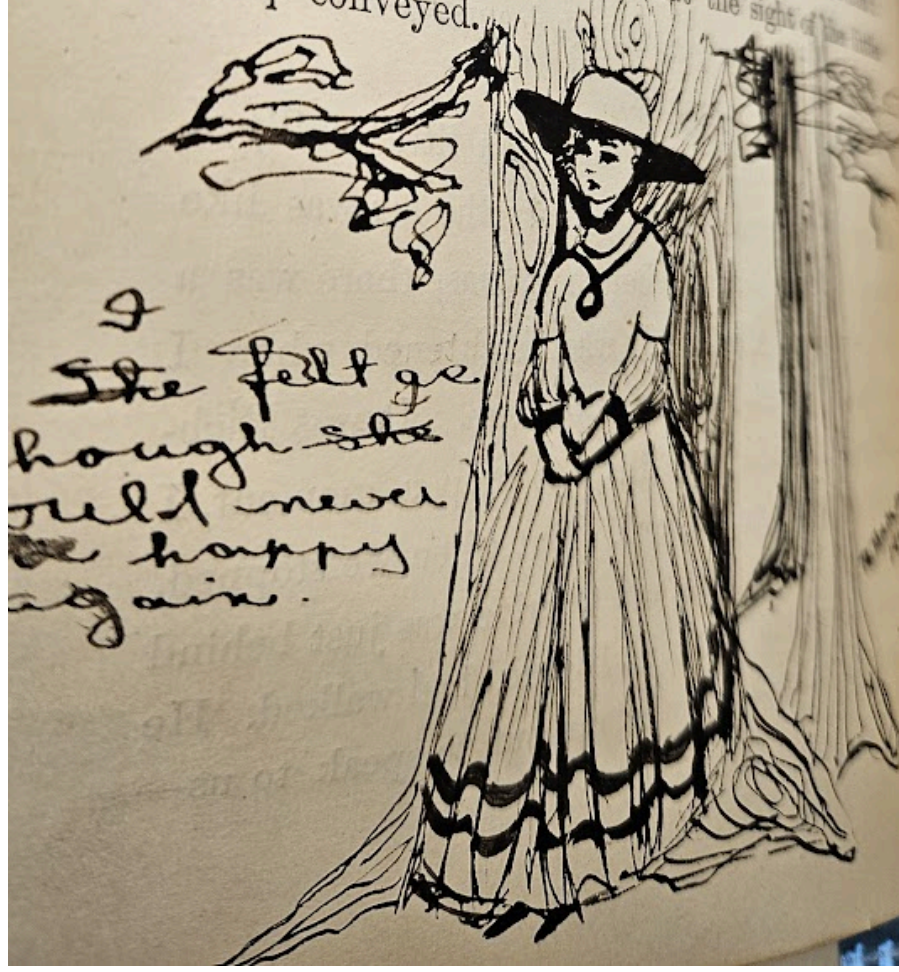 conveyed.
the sight of the little
I
She felt as
hough she
ould never
be happy
again.